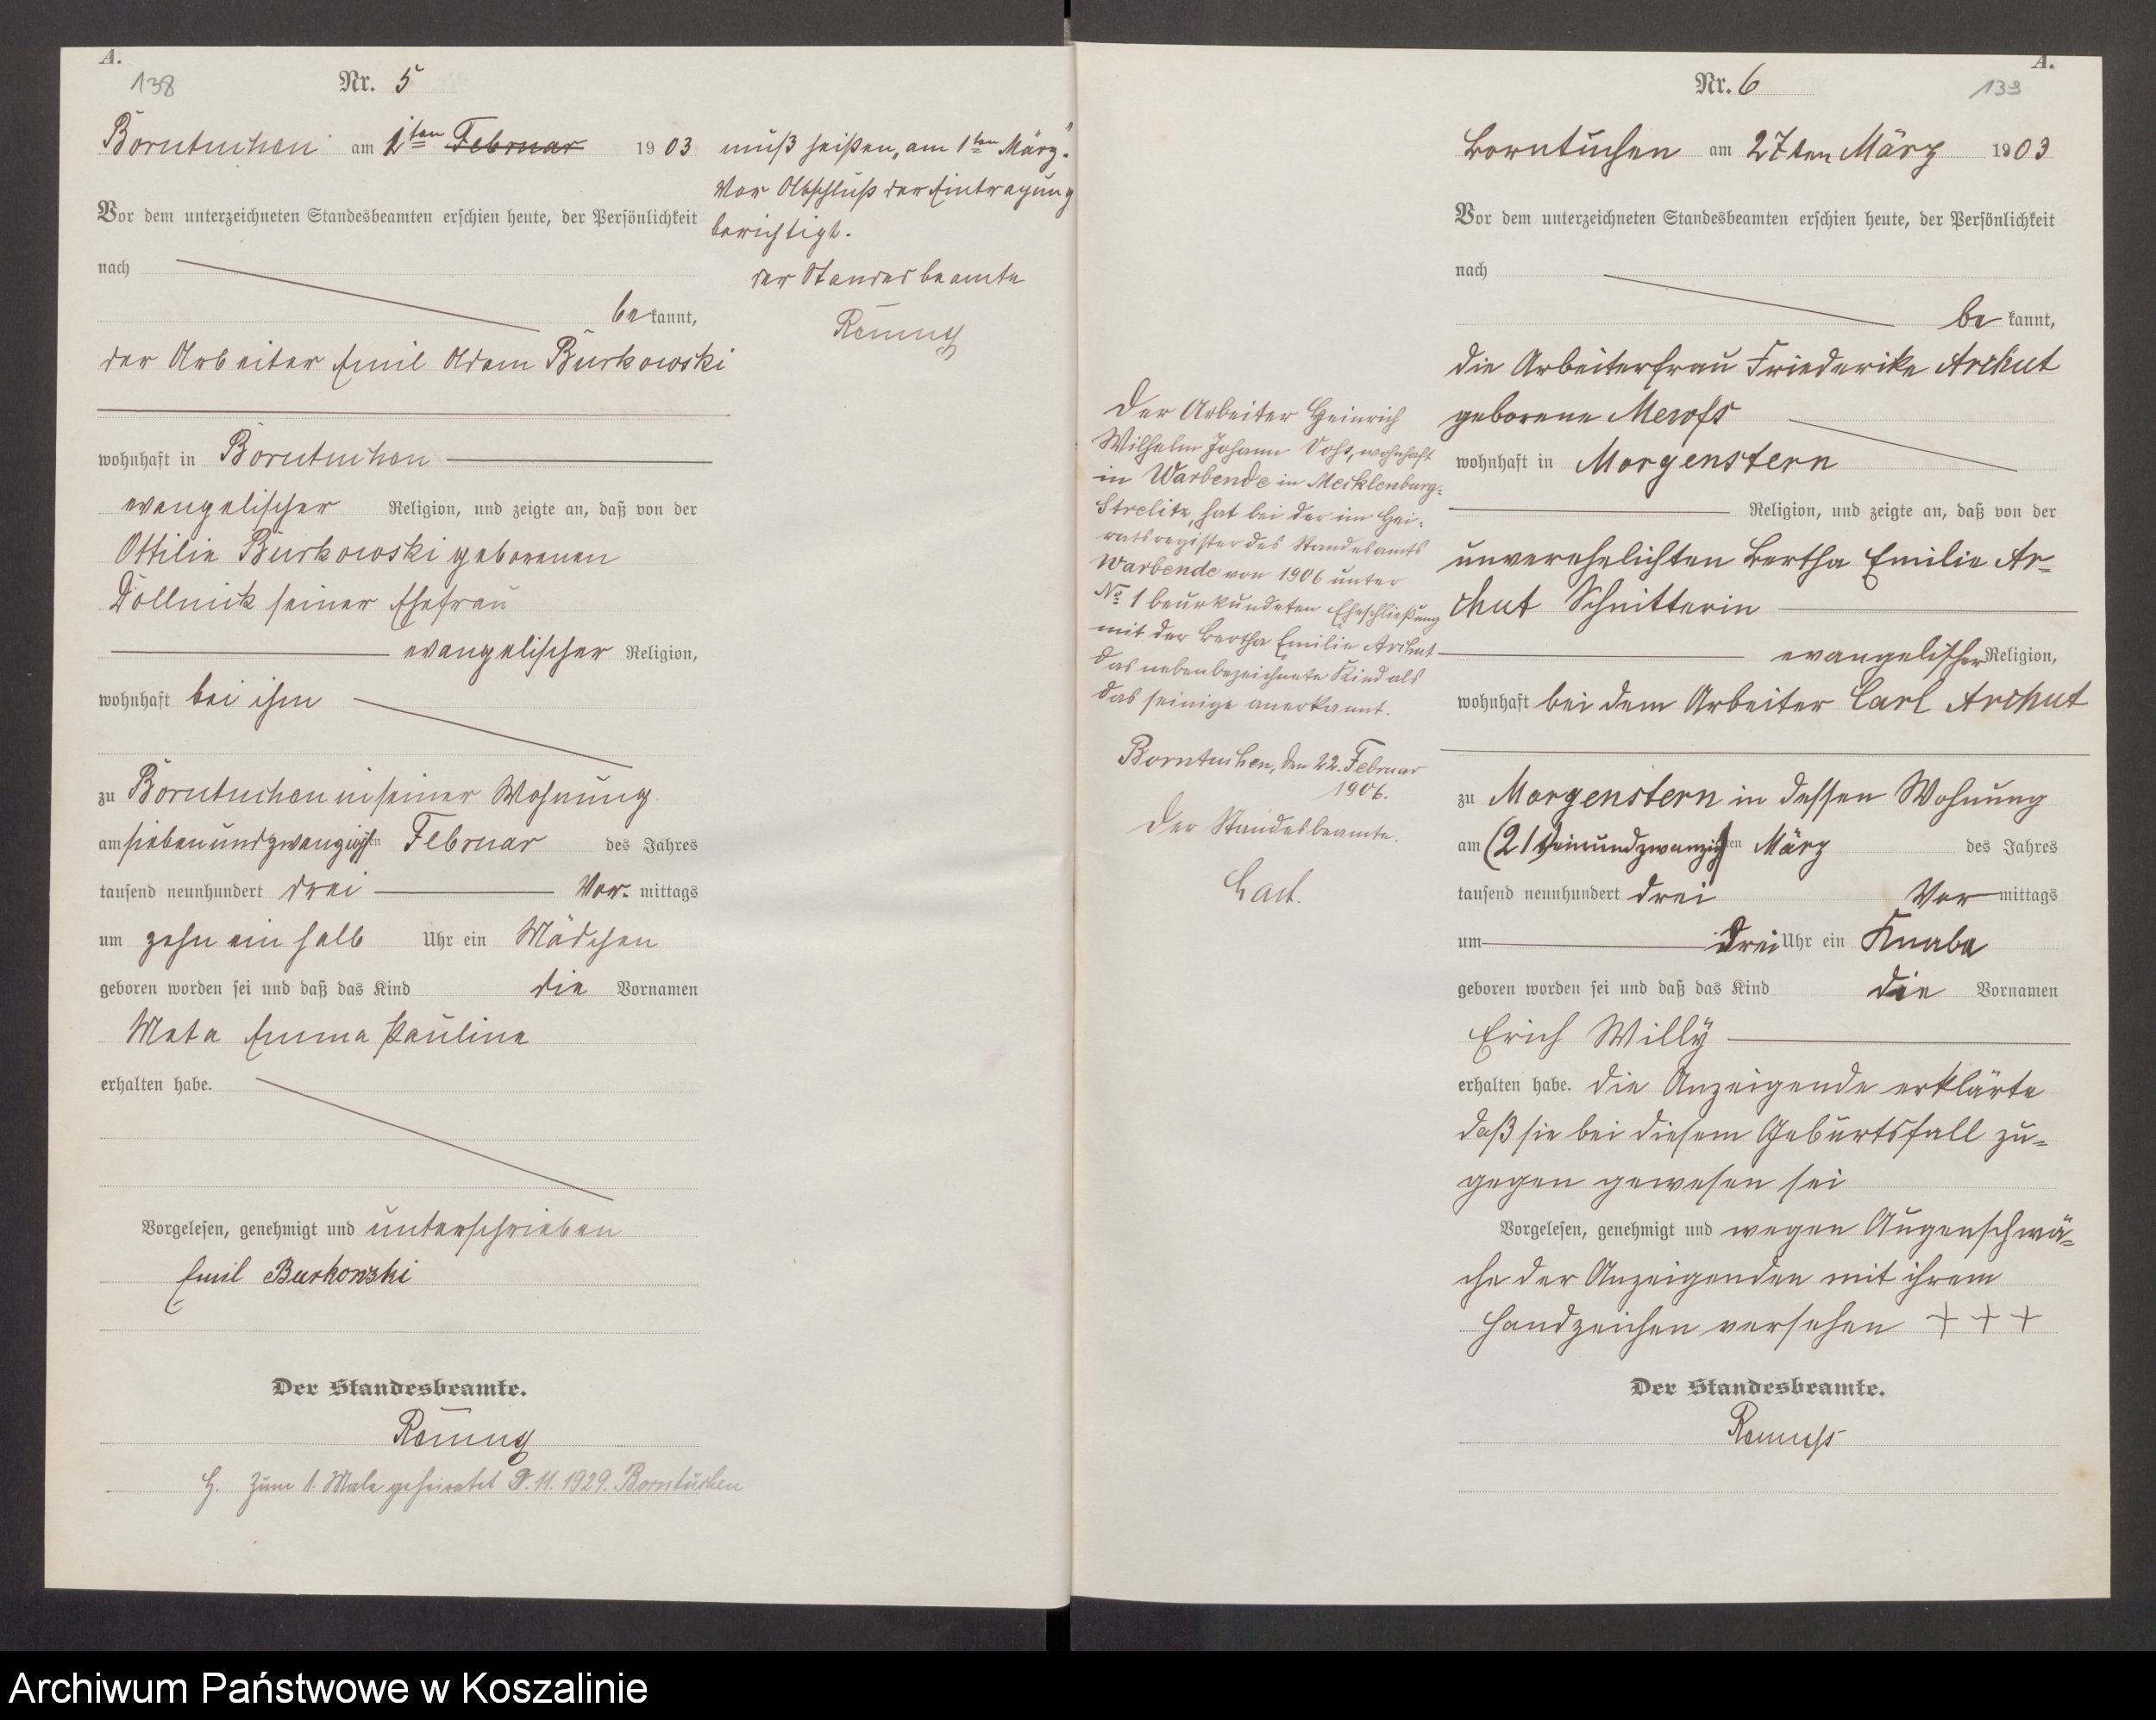 A.
138
Nr. 5
Borntuchen am 1ten Februar 1903
Vor dem unterzeichneten Standesbeamten erschien heute, der Persönlichkeit
nach
bekannt,
der Arbeiter Emil Adam Burkowski
wohnhaft in Borntuchen
evangelischer Religion, und zeigte an, daß von der
Ottilie Burkowski geborenen
Döllnick seiner Ehefrau
evangelischer Religion,
wohnhaft bei ihm
zu Borntuchen in seiner Wohnung
am siebenundzwanzigsten Februar des Jahres
tausend neunhundert drei Vor-mittags
um zehn ein halb Uhr ein Mädchen
geboren worden sei und daß das Kind die Vornamen
Meta Emma Pauline
erhalten habe.
Vorgelesen, genehmigt und unterschrieben
Emil Burkowski
Der Standesbeamte.
H. Zum 1. Male geheiratet 9.11.1929. Borntuchen
muß heißen „am 1ten März."
Vor Abschluß der Eintragung
berichtigt.
der Standesbeamte
A.
139
Nr. 6
Borntuchen am 27ten März 1903
Vor dem unterzeichneten Standesbeamten erschien heute, der Persönlichkeit
nach
bekannt,
die Arbeiterfrau Friederike Archut
geborene
wohnhaft in Morgenstern
Religion, und zeigte an, daß von der
unverehelichten Bertha Emilie Ar-
chut Schnitterin
evangelischer Religion,
wohnhaft bei dem Arbeiter Carl Archut
zu Morgenstern in dessen Wohnung
am (21) einundzwanzigsten März des Jahres
tausend neunhundert drei Vor mittags
um drei Uhr ein Knabe
geboren worden sei und daß das Kind die Vornamen
Erich Willy
erhalten habe. Die Anzeigende erklärte
daß sie bei diesem Geburtsfall zu-
gegen gewesen sei
Vorgelesen, genehmigt und wegen Augenschwä-
che der Anzeigenden mit ihrem
Handzeichen versehen + + +
Der Standesbeamte.
Der Arbeiter Heinrich
Wilhelm Johann Voß, wohnhaft
in Warbende in Mecklenburg-
Strelitz, hat bei der im Hei-
ratsregister des Standesamts
Warbende von 1906 unter
No 1 beurkundeten Eheschließung
mit der Bertha Emilie Archut
das nebenbezeichnete Kind als
das seinige anerkannt.
Borntuchen, den 22. Februar
1906.
Der Standesbeamte.
Archiwum Państwowe w Koszalinie